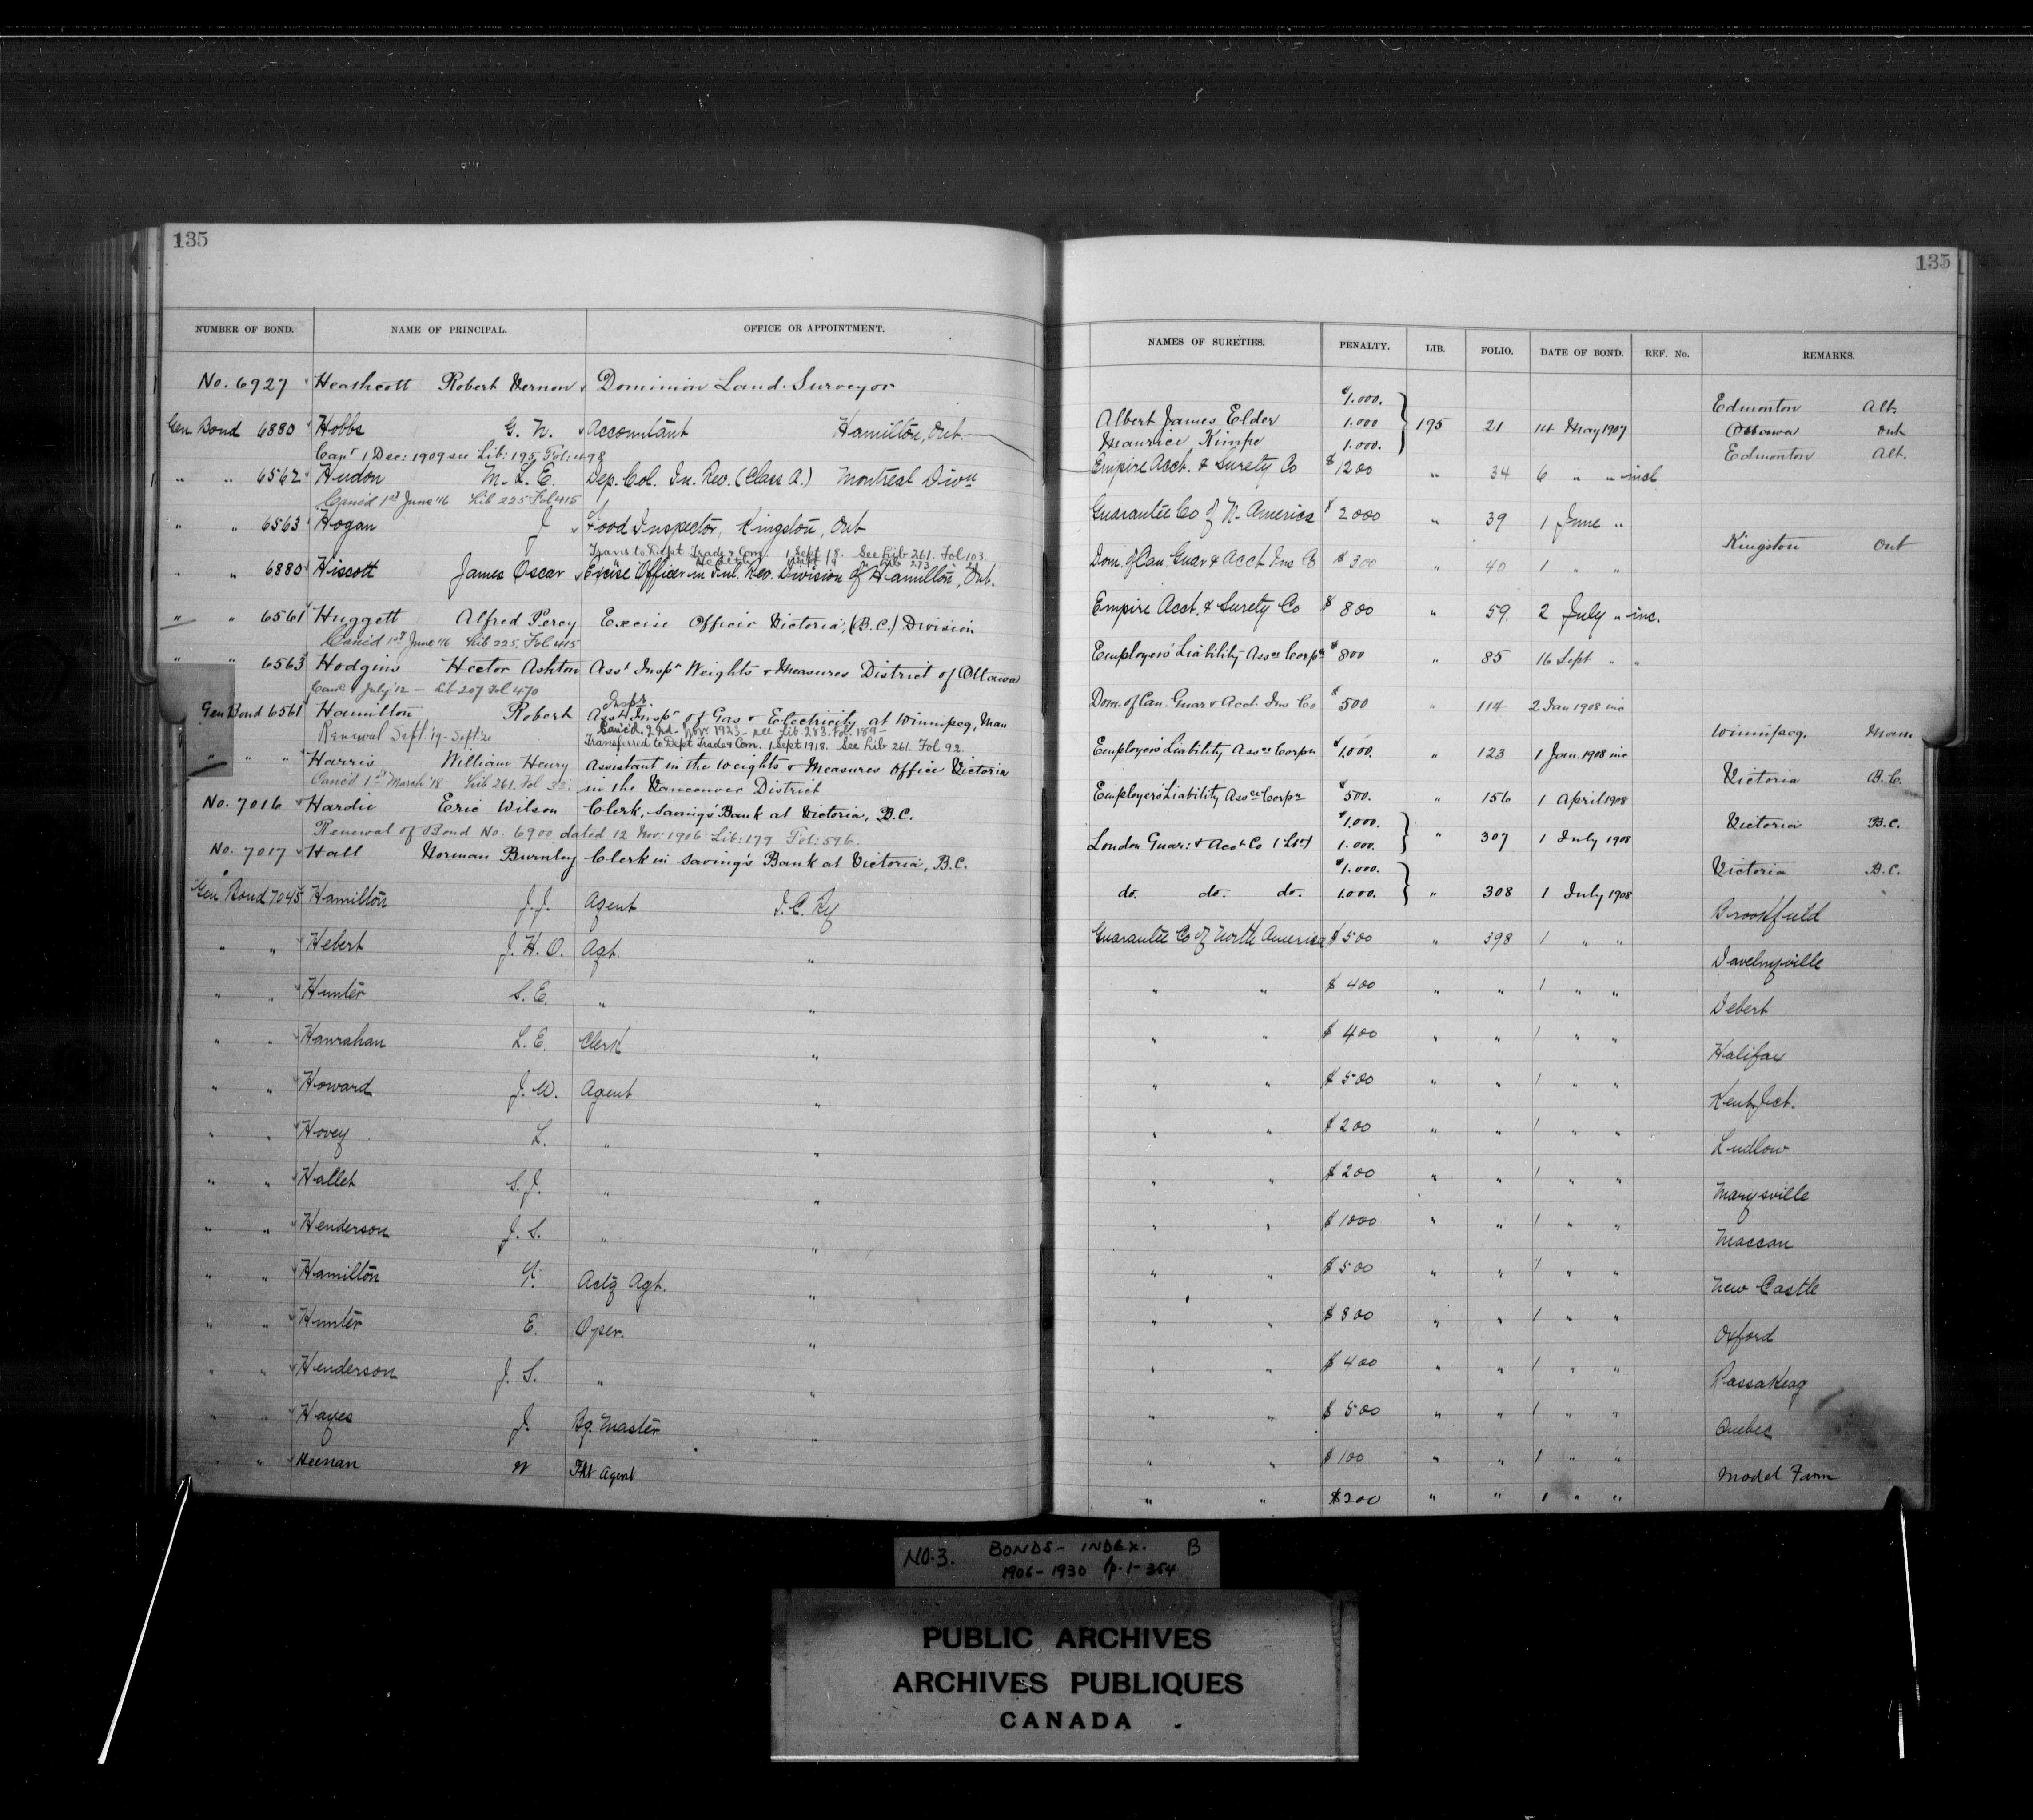 135
135
NUMBER OF BOND. NAME OF PRINCIPAL. OFFICE OR APPOINTMENT.
NAMES OF SURETIES. PENALTY. LIB. FOLIO. DATE OF BOND. REF. No. REMARKS.
No. 6927 Heathcott Robert Vernon Dominion Land Surveyor
Gen Bond 6880 Hobbs G. N. Accountant Hamilton, Ont.
1 Dec: 1909 see Lib: 195 Fol: 498
" " 6562 Hudon M. L. E. Dep. Col. In. Rev. (Class A.) Montreal Divn
Canc'd 1st June '16 Lib 225 Fol 415
" " 6563 Hogan J Food Inspector, Kingston, Ont
Trans to Dept Trade & Com. 1 Sept 18. See Lib 261. Fol 103
" " 6880 Hiscott James Oscar Excise Officer in Inl. Rev. Division of Hamilton, Ont.
" " 6561 Huggett Alfred Percy Excise Officer Victoria, (B.C.) Division
Canc'd 1st June '16 Lib 225. Fol 415
" " 6563 Hodgins Hector Ashton Asst Inspr Weights & Measures District of Ottawa
July '12 — Lib 207 Fol 470
Inspr.
Gen Bond 6561 Hamilton Robert Asst Inspr of Gas & Electricity at Winnipeg, Man
Canc'd. 2nd Nov. 1923 - see Lib. 283. Fol. 189 -
Renewal Sept. '19 - Sept: 20
Transferred to Dept Trade & Com. 1 Sept 1918. See Lib 261. Fol 92.
" " " Harris William Henry Assistant in the Weights & Measures Office Victoria
Canc'd 1st March '18 Lib 261. Fol 32. in the Vancouver District
No. 7016 Hardie Eric Wilson Clerk, Saving's Bank at Victoria, B.C.
Renewal of Bond No. 6900 dated 12 Nov: 1906 Lib: 179 Fol: 596.
No. 7017 Hall Norman Burnley Clerk in Saving's Bank at Victoria, B.C.
Gen Bond 7045 Hamilton J. J. Agent I. C. Ry
" " Hebert J. H. O. Agt. "
" " Hunter S. E. " "
" " Hanrahan L. E. Clerk "
" " Howard J. W. Agent "
" " Hovey L. " "
" " Hallet S. J. " "
" " Henderson J. S. " "
" " Hamilton Actg Agt. "
" " Hunter E. Oper. "
" " Henderson J. S. " "
" " Hayes J. Bg. Master "
" " Heenan W Fht Agent
$1.000.
Albert James Elder 1.000 195 21 14 May 1907
Maurice Kimpe 1.000.
Edmonton Alt.
Ottawa Ont
Edmonton Alt.
Empire Acct. & Surety Co $1200 " 34 6 " " incl
Guarantee Co of N. America $2000 " 39 1 June "
Kingston Ont
Dom. of Can. Guar & Acct Ins Co $300 " 40 1 " "
Empire Acct. & Surety Co $800 " 59. 2 July " inc.
Employers' Liability Assce Corpn $800 " 85 16 Sept " "
Dom. of Can. Guar & Acct. Ins Co $500 " 114 2 Jan 1908 inc
Winnipeg. Man.
Employers Liability Assce Corpn $1000. " 123 1 Jan. 1908 inc
Victoria B.C.
Employers' Liability Assce Corpn $500. " 156 1 April 1908
Victoria B.C.
$1,000.
London Guar: & Acct Co (Ltd) 1.000. " 307 1 July 1908
Victoria B.C.
$1.000.
do. do. do. 1.000. " 308 1 July 1908
Brookfield
Guarantee Co of North America $500 " 398 1 " "
" " $400 " " 1 " "
Debert
" " $400 " " 1 " "
Halifax
" " $500 " " 1 " "
Kent Jct.
" " $200 " " 1 " "
Ludlow
" " $200 " " 1 " "
Marysville
" " $1000 " " 1 " "
Maccan
" " $500 " " 1 " "
New Castle
" " $800 " " 1 " "
Oxford
" " $400 " " 1 " "
Passakeag
" " $500 " " 1 " "
Quebec
" " $100 " " 1 " "
Model Farm
" " $200 " " 1 " "
NO. 3. BONDS - INDEX. B
1906 - 1930 p. 1 - 354
PUBLIC ARCHIVES
ARCHIVES PUBLIQUES
CANADA